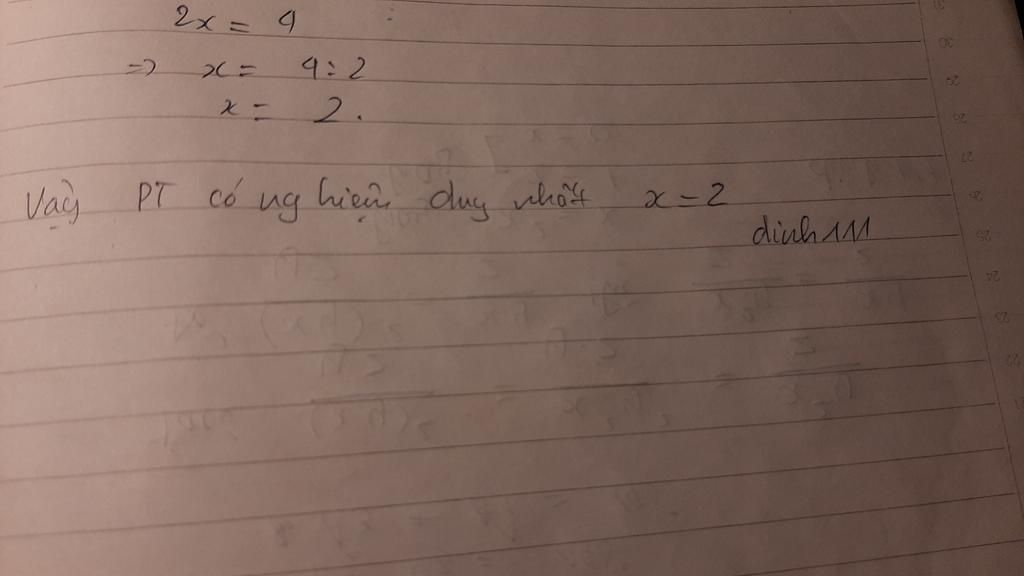 2x = 4
=> x = 4 : 2
x = 2.
Vậy PT có nghiệm duy nhất x = 2
dinh111